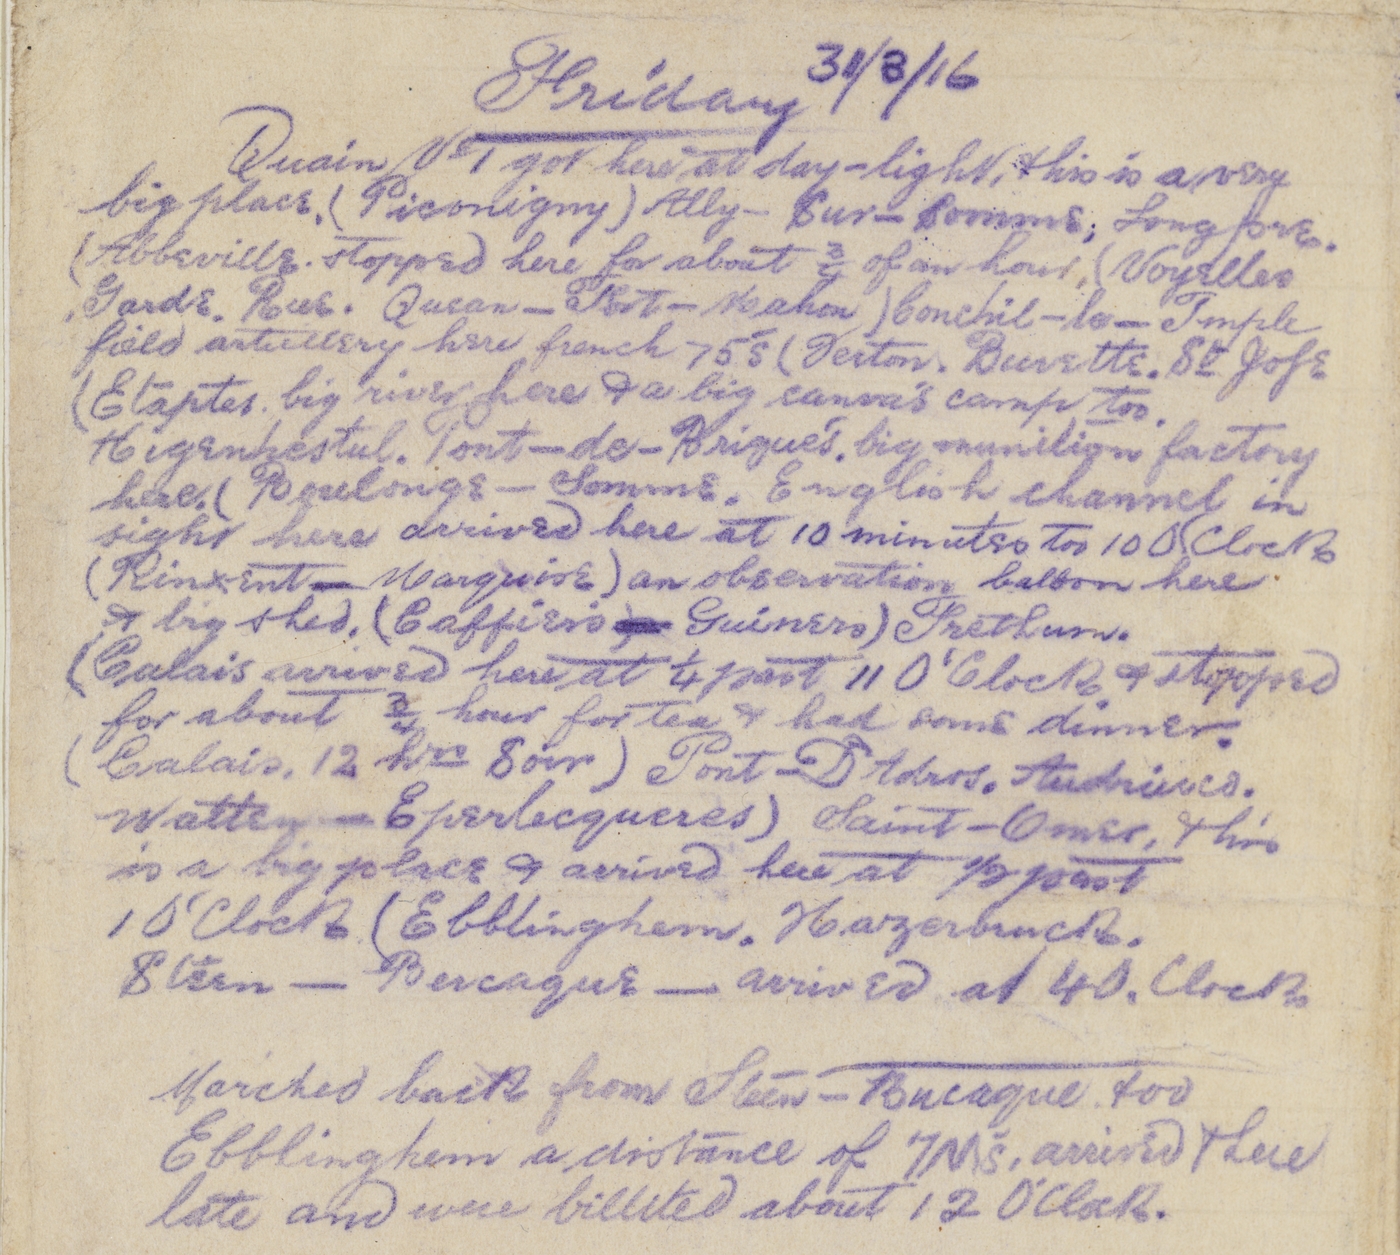 Friday 31/3/16
Quain, Vst got here at day-light, this is a very
big place. (Piconigny) Ally- Sur- Somme; Long pre.
(Abbeville. stopped here for about 3/4 of an hour, (Voyelles
Garde. Rue. Quean - Fort - Mahon) Conchil-le- Tmple
field artillery here french 75s (Verton. Buvette. St Jose
(Etaptes. big river here & a big canvas camp too.
Higenhestul. Pont-de-Briques. big munition factory
here. (Boulonge - Somme. English channel in
sight here arrived here at 10 minutes too 10 O'Clock
(Rinxent - Marquise) an observation balloon here
& big shed. (Caffiers - Guiners) Frethum.
(Calais arrived here at 1/4 past 11 O'Clock & stopped
for about 3/4 hour for tea & had some dinner.
(Calais. 12 hrs Soir) Pont-D'Adros. Audriuces.
Watten - Eperlecqueres) Saint-Omer, this
is a big place & arrived here at 1/2 past
1 O'Clock (Ebblinghem. Hazerbruck.
Steen - Becaque - arrived at 4 O. Clock
Marched back from Steen-Bucaque too
Ebblinghem a distance of 7 Ms. arrived there
late and were billeted about 12 O'Clock.